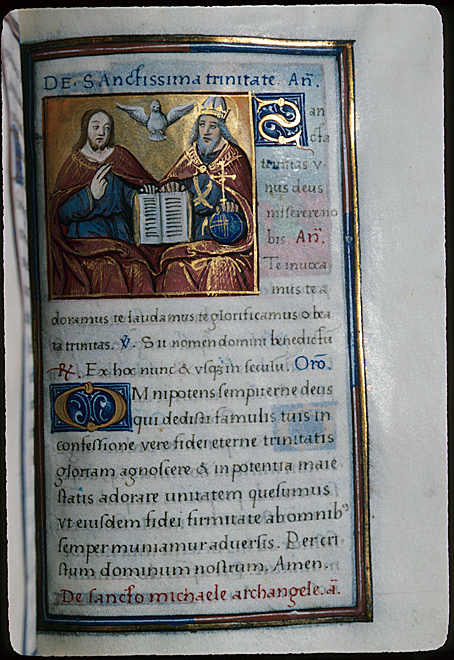 DE. SAnctissima trinitate. An̄.
San
cta
trinitas v
nus deus
miserere no
bis. An̄.
Te inuoca
mus te a
doramus te laudamus te glorificamus o bea
ta trinitas. ℣. Sit nomen domini benedictū
℟. Ex hoc nunc & vsqȝ in seculū. Orō.
OMnipotens sempiterne deus
qui dedisti famulis tuis in
confessione vere fidei eterne trinitatis
gloriam agnoscere & in potentia maie
statis adorare unitatem quesumus
vt eiusdem fidei firmitate ab omnibꝰ
semper muniamur aduersis. Per cri
stum dominum nostrum. Amen.
De sancto michaele archangele. ā.